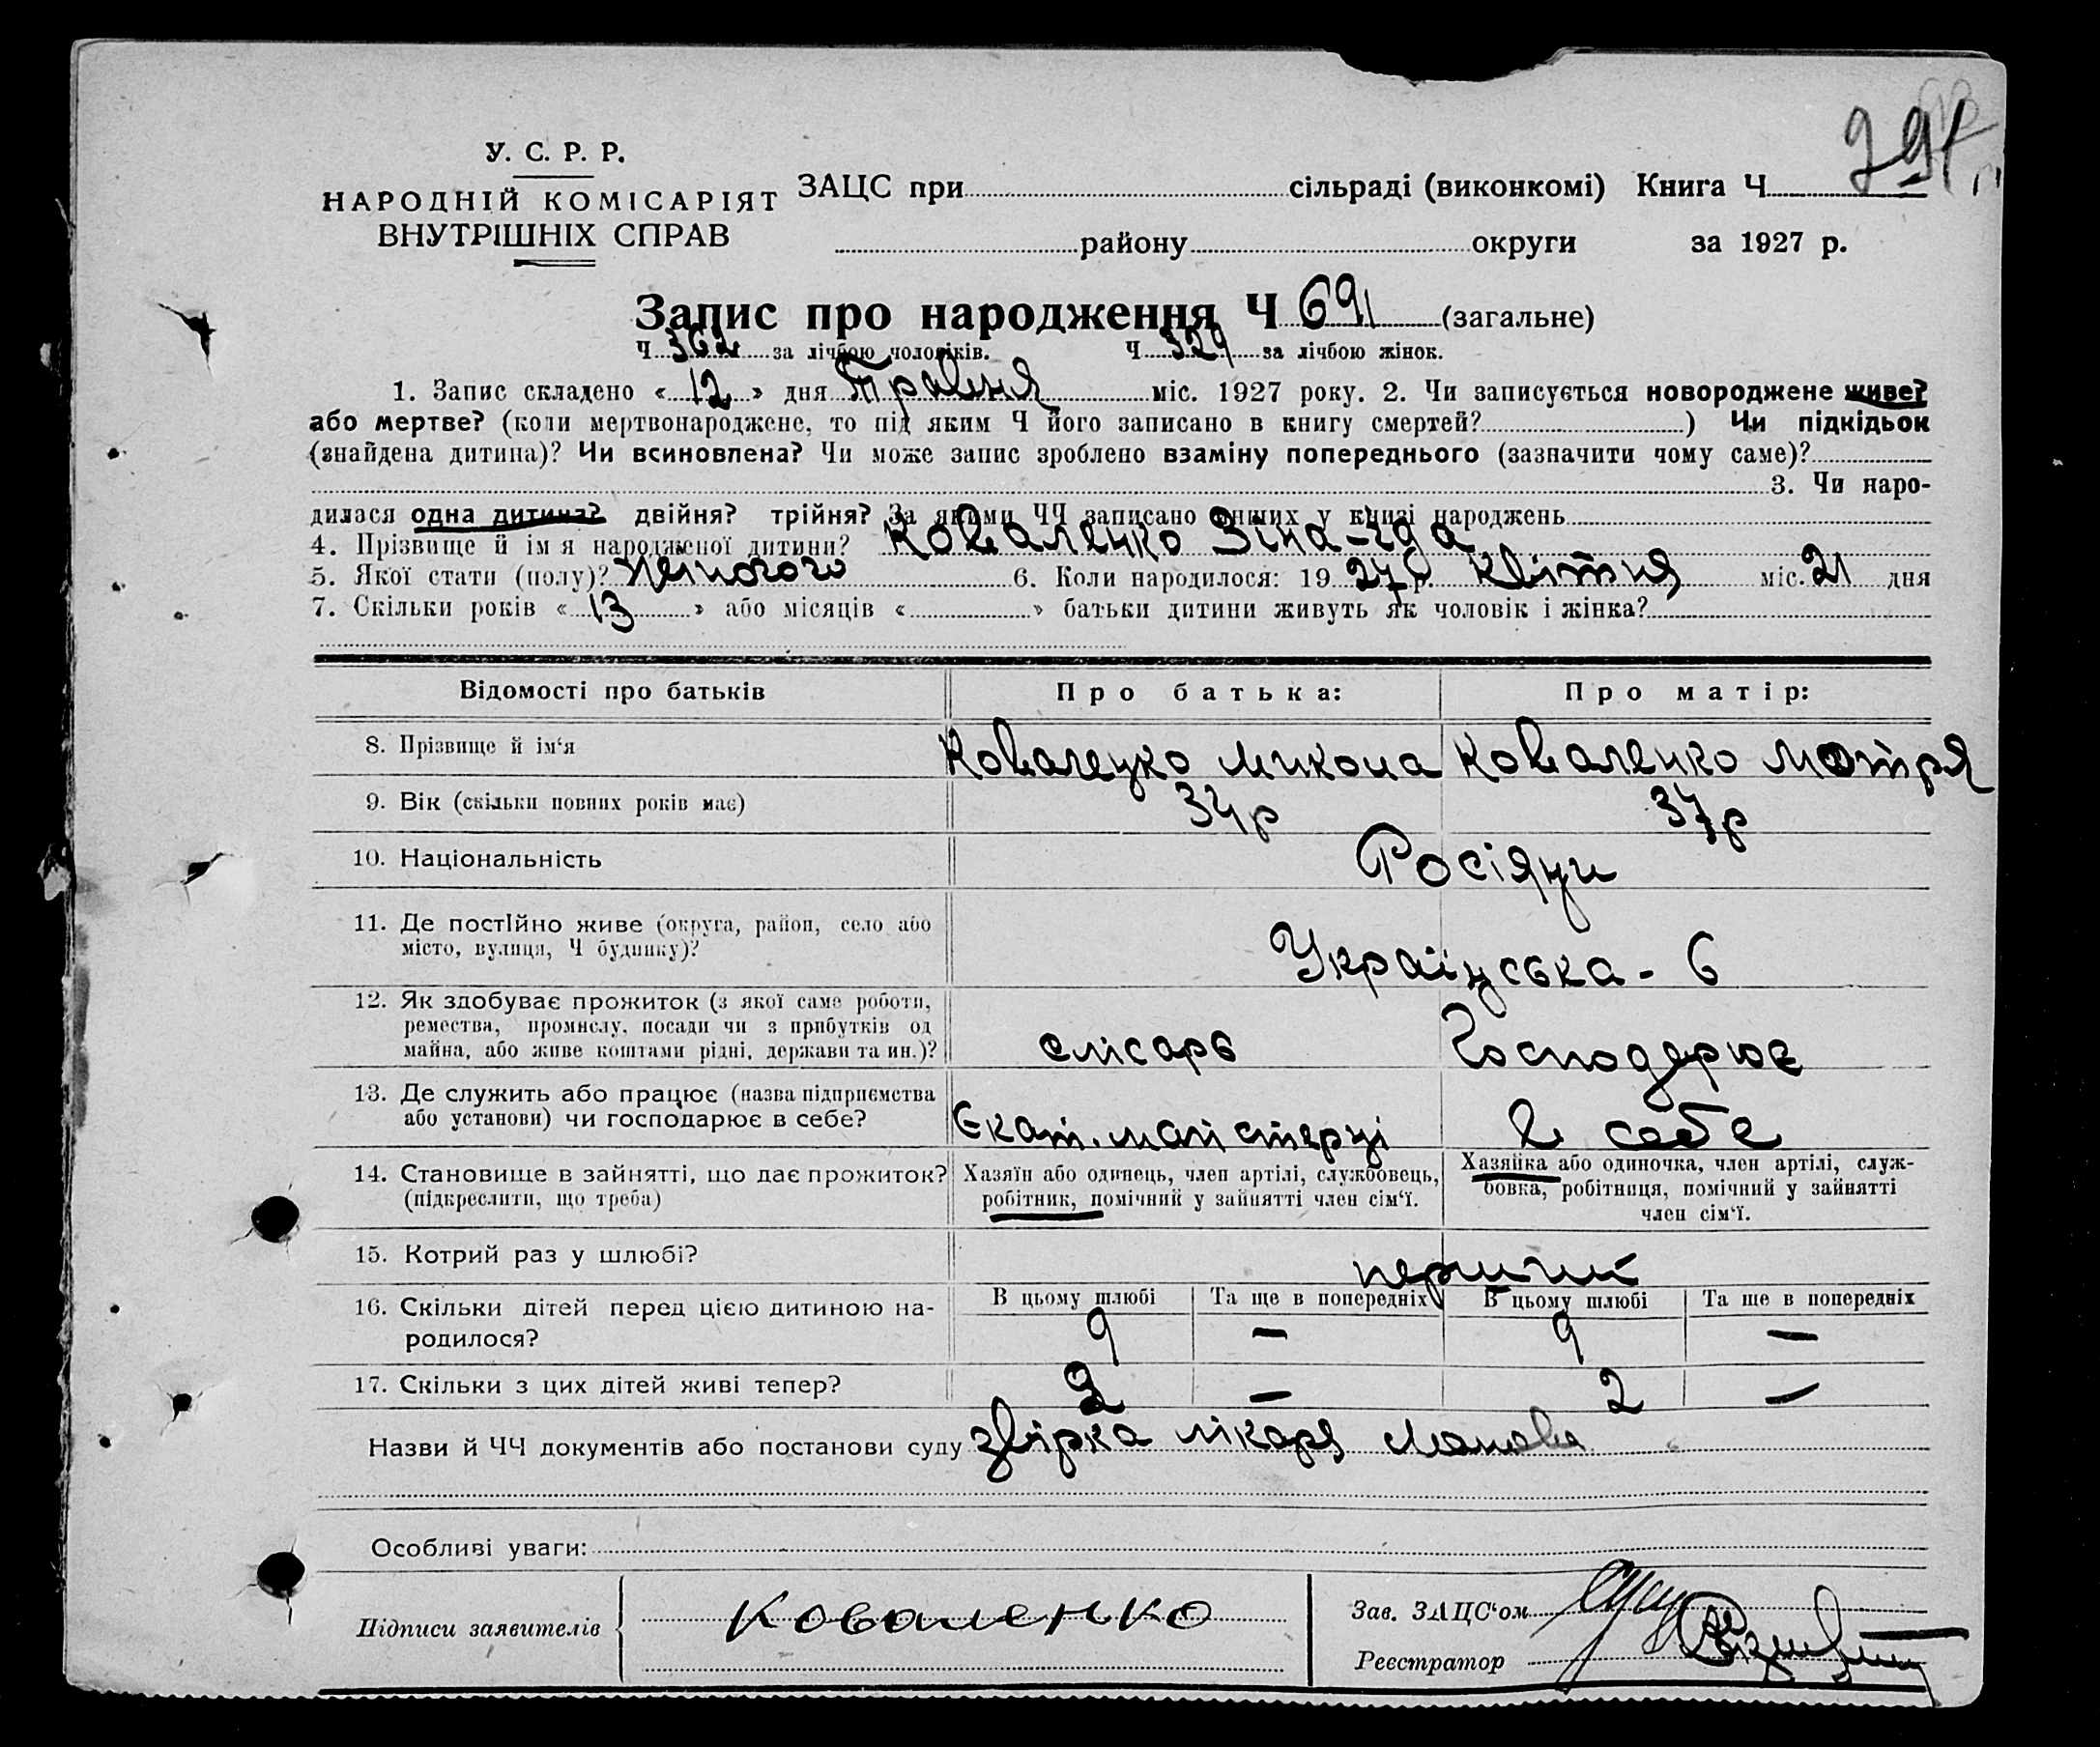 291
У. С. Р. Р.
НАРОДНІЙ КОМІСАРІЯТ
ВНУТРІШНІХ СПРАВ
ЗАЦС при сільраді (виконкомі) Книга Ч
району округи за 1927 р.
Запис про народження Ч 691 (загальне)
Ч 362 за лічбою чоловіків. Ч 329 за лічбою жінок.
1. Запис складено « 12 » дня Травня міс. 1927 року. 2. Чи записується новороджене живе?
або мертве? (коли мертвонароджене, то під яким Ч його записано в книгу смертей? ) Чи підкідьок
(знайдена дитина)? Чи всиновлена? Чи може запис зроблено взаміну попереднього (зазначити чому саме)?
3. Чи наро-
дилася одна дитина? двійня? трійня? За якими ЧЧ записано инших у книзі народжень
4. Прізвище й ім'я народженої дитини? Коваленко Зіна-їда
5. Якої стати (полу)? жіночого 6. Коли народилося: 19 27 р. Квітня міс. 21 дня
7. Скільки років « 13 » або місяців « » батьки дитини живуть як чоловік і жінка?
Відомості про батьків Про батька: Про матір:
8. Прізвище й ім'я Коваленко Микола Коваленко Мотря
9. Вік (скільки повних років має) 34р 37р
10. Національність Росіяни
11. Де постійно живе (округа, район, село або
місто, вулиця, Ч будинку)? Українська - 6
12. Як здобуває прожиток (з якої саме роботи,
ремества, промислу, посади чи з прибутків од
майна, або живе коштами рідні, держави та ин.)? слісарь Господарює
13. Де служить або працює (назва підприємства
або установи) чи господарює в себе? Єкат. майстерні в себе
14. Становище в зайнятті, що дає прожиток?
(підкреслити, що треба)
Хазяїн або одинець, член артілі, службовець,
робітник, помічний у зайнятті член сім'ї.
Хазяйка або одиночка, член артілі, служ-
бовка, робітниця, помічний у зайнятті
член сім'ї.
15. Котрий раз у шлюбі? перший
16. Скільки дітей перед цією дитиною на-
родилося?
В цьому шлюбі Та ще в попередніх В цьому шлюбі Та ще в попередніх
9 — 9 —
17. Скільки з цих дітей живі тепер? 2 — 2 —
Назви й ЧЧ документів або постанови суду звірка лікаря
Особливі уваги:
Підписи заявителів Коваленко
Зав. ЗАЦС'ом
Реєстратор